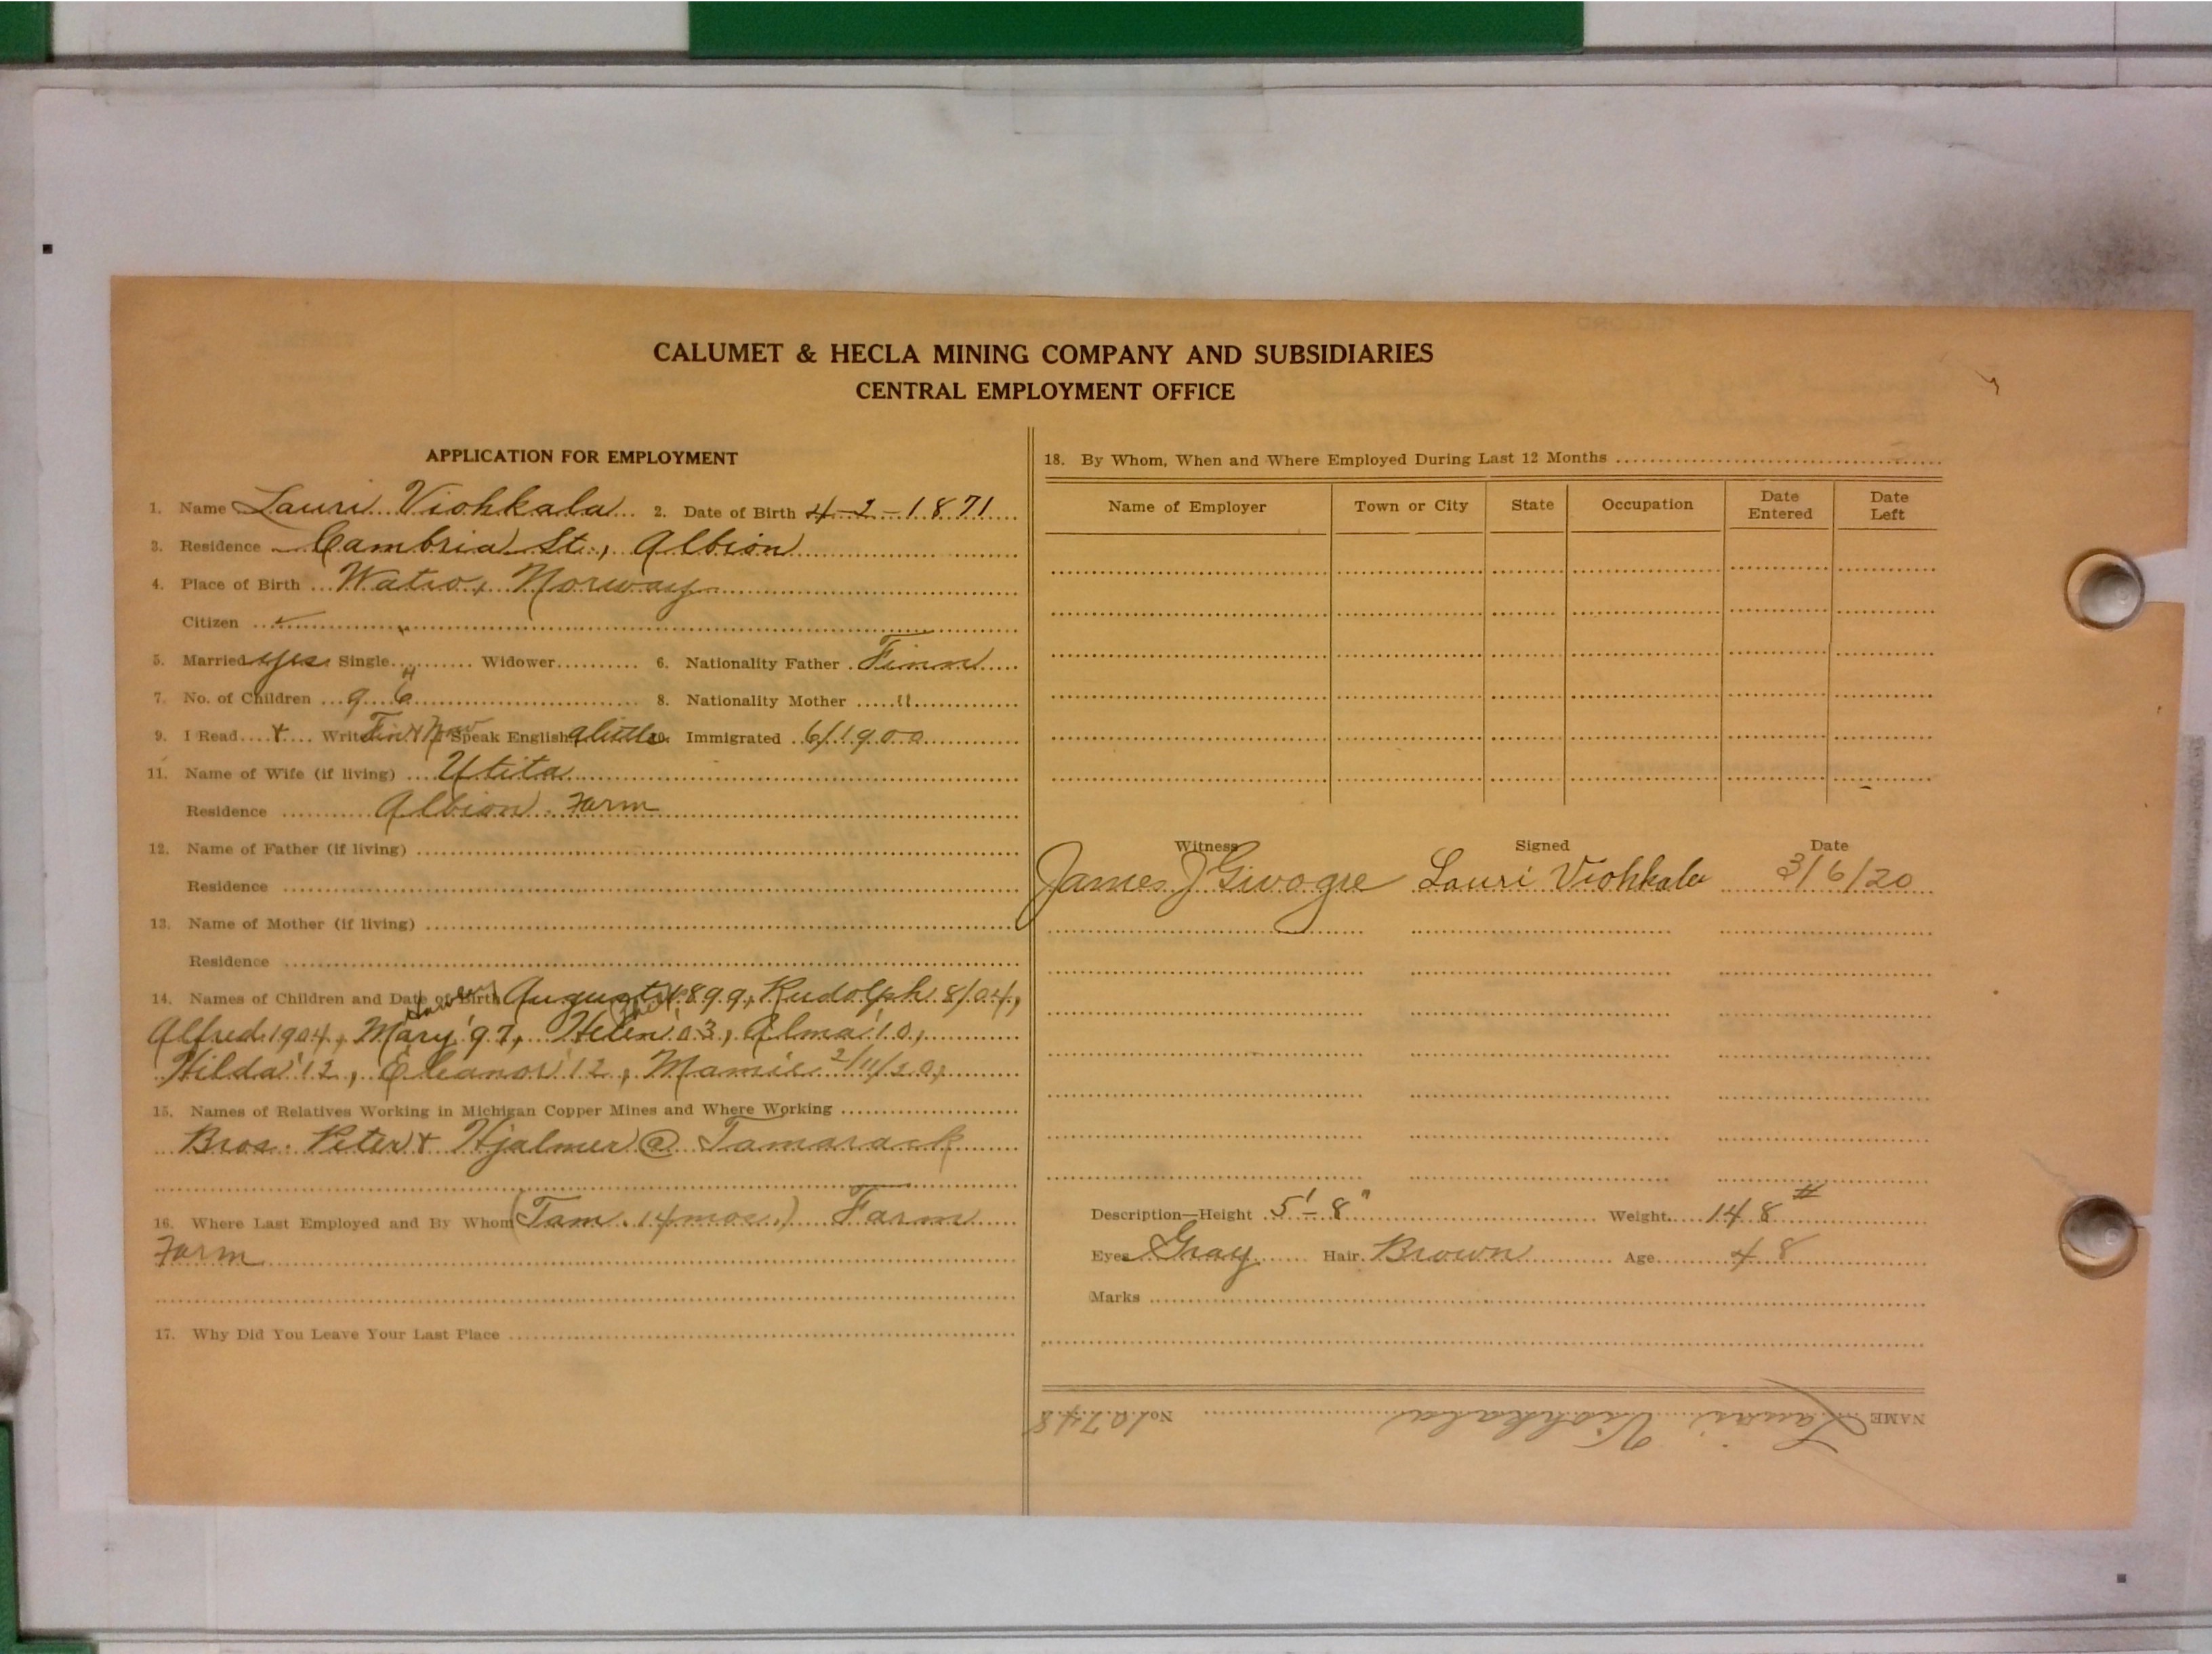 CALUMET & HECLA MINING COMPANY AND SUBSIDIARIES
CENTRAL EMPLOYMENT OFFICE
APPLICATION FOR EMPLOYMENT
1. Name Lauri Viohkala 2. Date of Birth 4-2-1871
3. Residence Cambria St., Albion
4. Place of Birth Watso, Norway
Citizen
5. Married yes Single Widower 6. Nationality Father Finn
7. No. of Children 9 6 8. Nationality Mother "
9. I Read + Write Fin + Nor Speak English a little 10. Immigrated 6/1900
11. Name of Wife (if living) Utita
Residence Albion Farm
12. Name of Father (if living)
Residence
13. Name of Mother (if living)
Residence
14. Names of Children and Date of Birth August 1899, Rudolph 8/04,
Alfred 1904, Mary '97, Helen '03, Alma '10,
Hilda '12, Eleanor '12, Mamie 2/11/20,
15. Names of Relatives Working in Michigan Copper Mines and Where Working
Bros. Peter + Hjalmer @ Tamarack
16. Where Last Employed and By Whom (Tam. 14 mos.) Farm
Farm
17. Why Did You Leave Your Last Place
18. By Whom, When and Where Employed During Last 12 Months
Name of Employer Town or City State Occupation Date Entered Date Left
Witness Signed Date
James J Lauri Viohkala 3/6/20
Description—Height 5'-8" Weight 148#
Eyes Gray Hair Brown Age 48
Marks
NAME Lauri Viohkala No. 10748